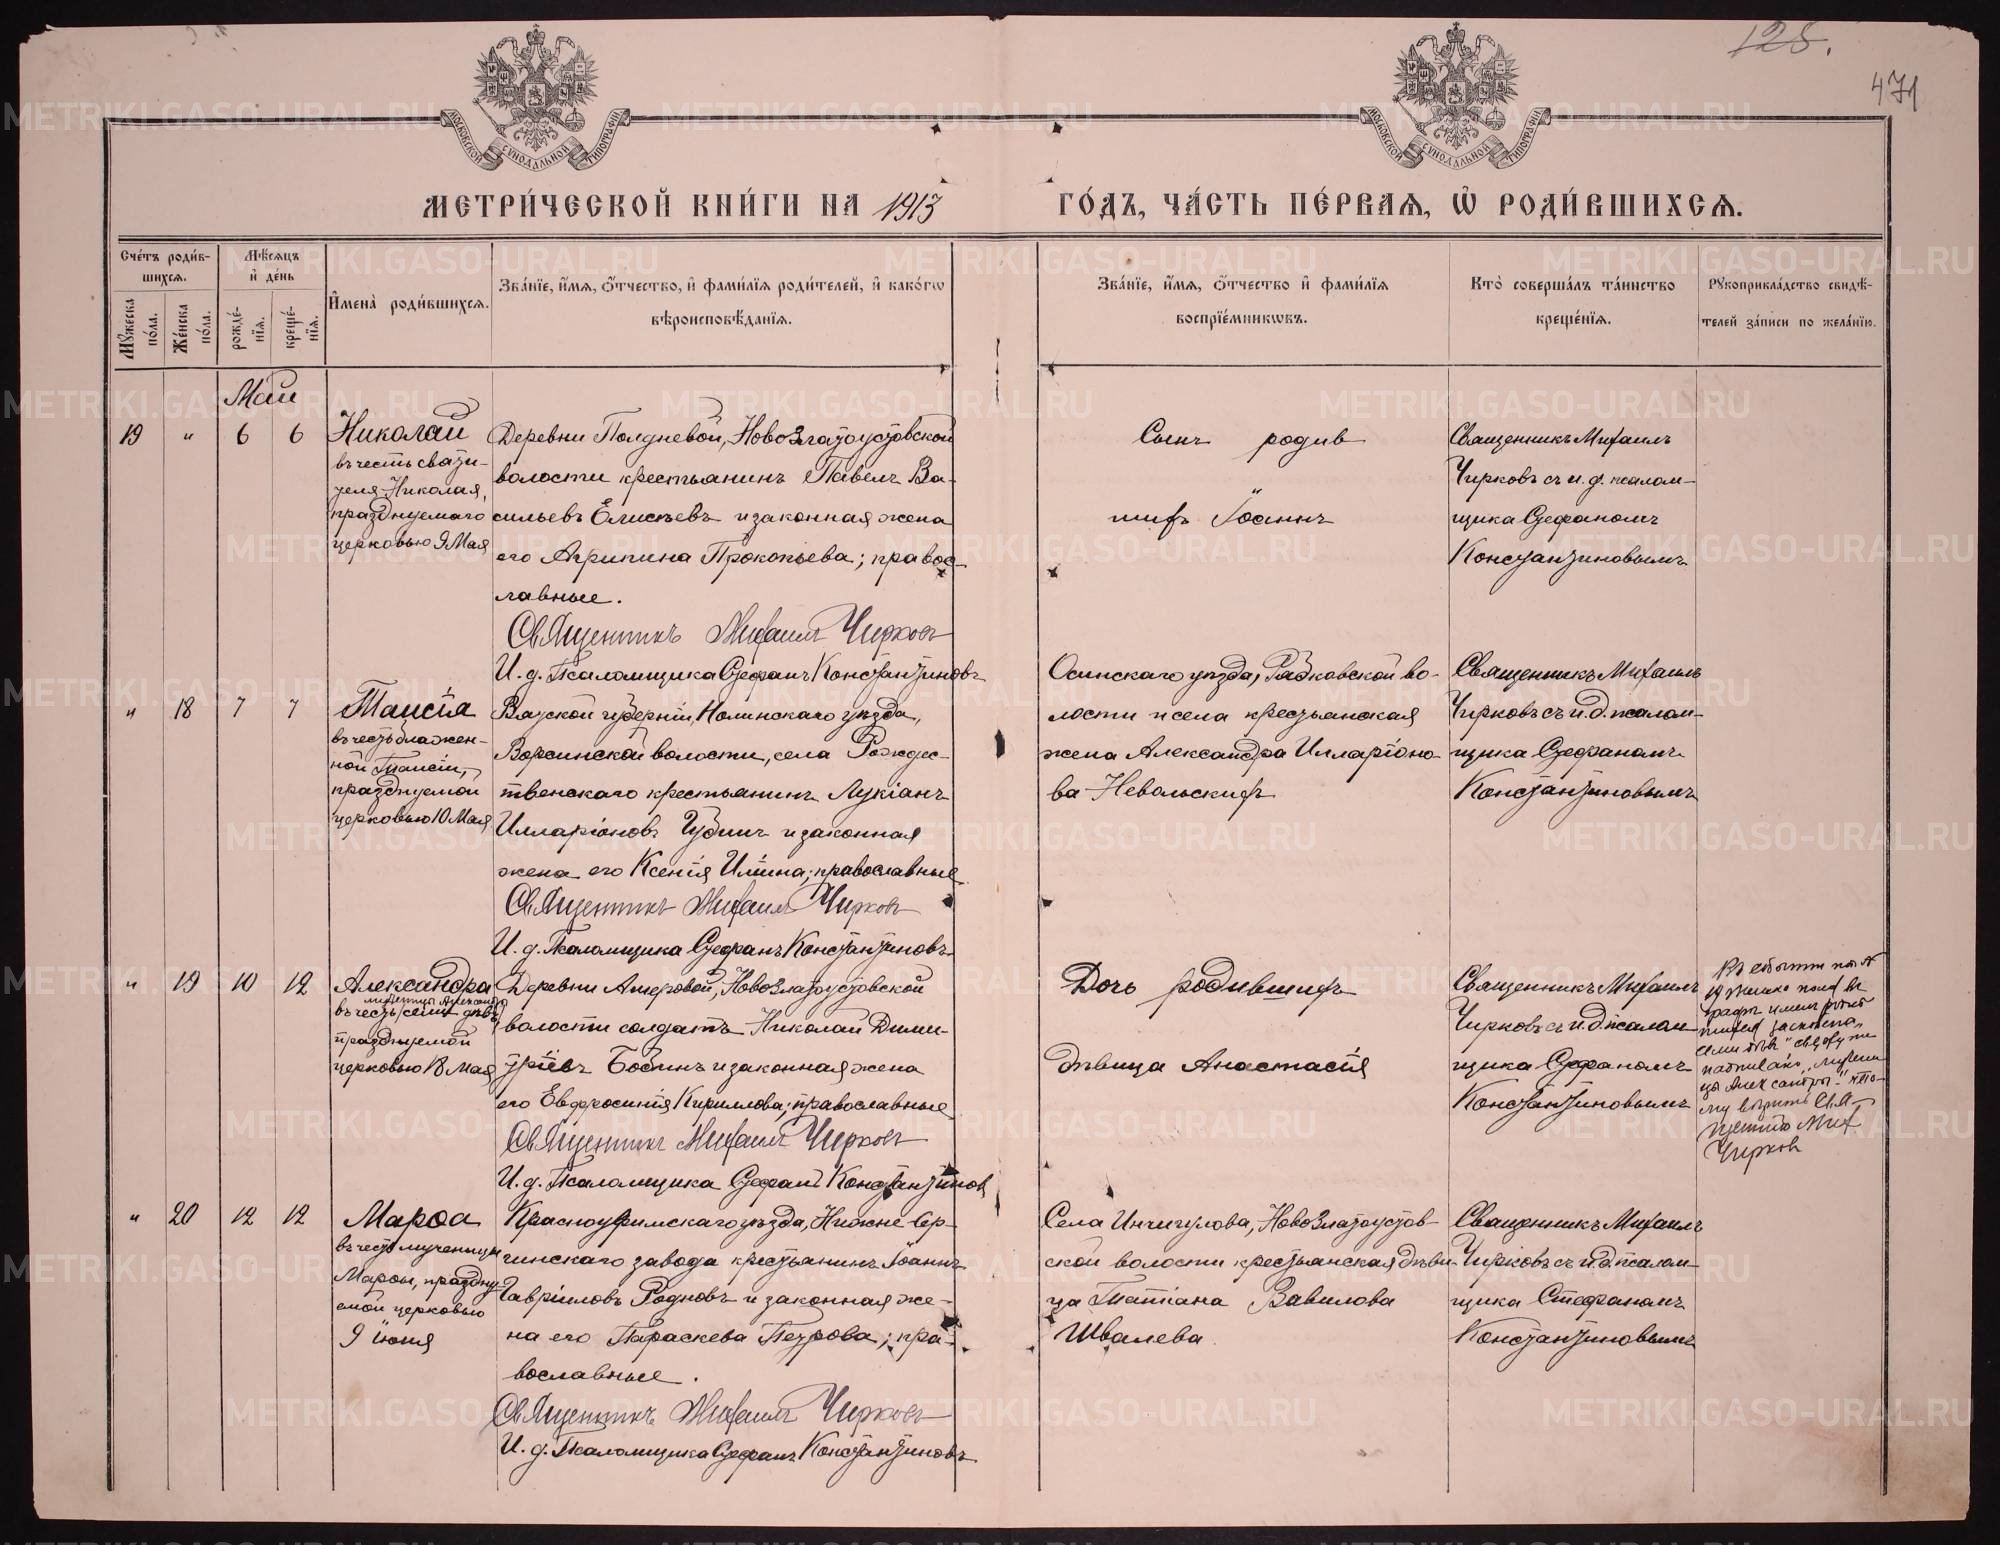 125.
471
МОСКОВСКОЙ СѴНОДАЛЬНОЙ ТИПОГРАФІИ
МОСКОВСКОЙ СѴНОДАЛЬНОЙ ТИПОГРАФІИ
МЕТРИ́ЧЕСКОЙ КНИ́ГИ НА 1913 ГО́ДЪ, ЧА́СТЬ ПЕ́РВАЯ, Ѡ РОДИ́ВШИХСЯ.
Сче́тъ роди́в-
шихся.
Мѣ́сяцъ
и де́нь
Мꙋ́жеска по́ла.
Же́нска по́ла.
рожде́-
нїя.
креще́-
нїя.
И҆мена̀ роди́вшихся.
Зва́нїе, и҆́мя, ѻ҆́тчество, и҆ фами́лїя роди́телей, и҆ како́гѡ
вѣроисповѣ́данїя.
Зва́нїе, и҆́мя, ѻ҆́тчество и҆ фами́лїя
воспрїе́мникѡвъ.
Кто̀ соверша́лъ та́инство
креще́нїя.
Рꙋкоприкла́дство свидѣ́-
телей за́писи по жела́нїю.
Май
19 " 6 6
Николай
въ честь святи-
теля Николая,
празднуемаго
церковью 9 Мая
Деревни Полдневой, Новозлатоустовской
волости крестьянинъ Павелъ Ва-
сильевъ Елисѣевъ и законная жена
его Агрипина Прокопьева; правос-
лавные.
Священникъ Михаилъ Чирковъ
И. д. Псаломщика Стефанъ Константиновъ
Сынъ родив
шихъ Іоаннъ
Священникъ Михаилъ
Чирковъ съ и. д. псалом-
щика Стефаномъ
Константиновымъ
" 18 7 7
Таисія
въ честь блажен-
ной Таисіи,
празднуемой
церковью 10 Мая
Вятской губерніи, Нолинскаго уѣзда,
Ворсинской волости, села Рождес-
твенскаго крестьянинъ Лукіанъ
Илларіоновъ Чубинъ и законная
жена его Ксенія Ильина; православные
Священникъ Михаилъ Чирковъ
И. д. Псаломщика Стефанъ Константиновъ
Осинскаго уѣзда, Рябковской во-
лости и села крестьянская
жена Александра Илларіоно-
ва Невольскихъ
Священникъ Михаилъ
Чирковъ съ и. д. псалом-
щика Стефаномъ
Константиновымъ
" 19 10 12
Александра
мученицы Александры
въ честь семи дѣвъ
празднуемой
церковью 18 Мая
Деревни Ашеровой, Новозлатоустовской
волости солдатъ Николай Дими-
тріевъ Бобинъ и законная жена
его Евфросинія Кириллова; православные
Священникъ Михаилъ Чирковъ
И. д. Псаломщика Стефанъ Константиновъ
Дочь родившихъ
дѣвица Анастасія
Священникъ Михаилъ
Чирковъ съ и. д. псалом
щика Стефаномъ
Константиновымъ
Въ събытіи подъ №
19 женска пола въ
графѣ имена родив
шихся
семи дѣвъ" сверху же
надписано „мучени
цы Александры." что-
му вѣрить Свя-
щенникъ Мих.
Чирковъ
" 20 12 12
Марѳа
въ честь мученицы
Марѳы, праздну-
емой церковью
9 іюня
Красноуфимскаго уѣзда, Нижне-Сер-
гинскаго завода крестьянинъ Іоаннъ
Гавріиловъ Родновъ и законная же-
на его Параскева Петрова; пра-
вославные.
Священникъ Михаилъ Чирковъ
И. д. Псаломщика Стефанъ Константиновъ
Села Инчигулова, Новозлатоустов-
ской волости крестьянская дѣви-
ца Татіана Вавилова
Швалева.
Священникъ Михаилъ
Чирковъ съ и. д. псалом-
щика Стефаномъ
Константиновымъ
METRIKI.GASO-URAL.RU